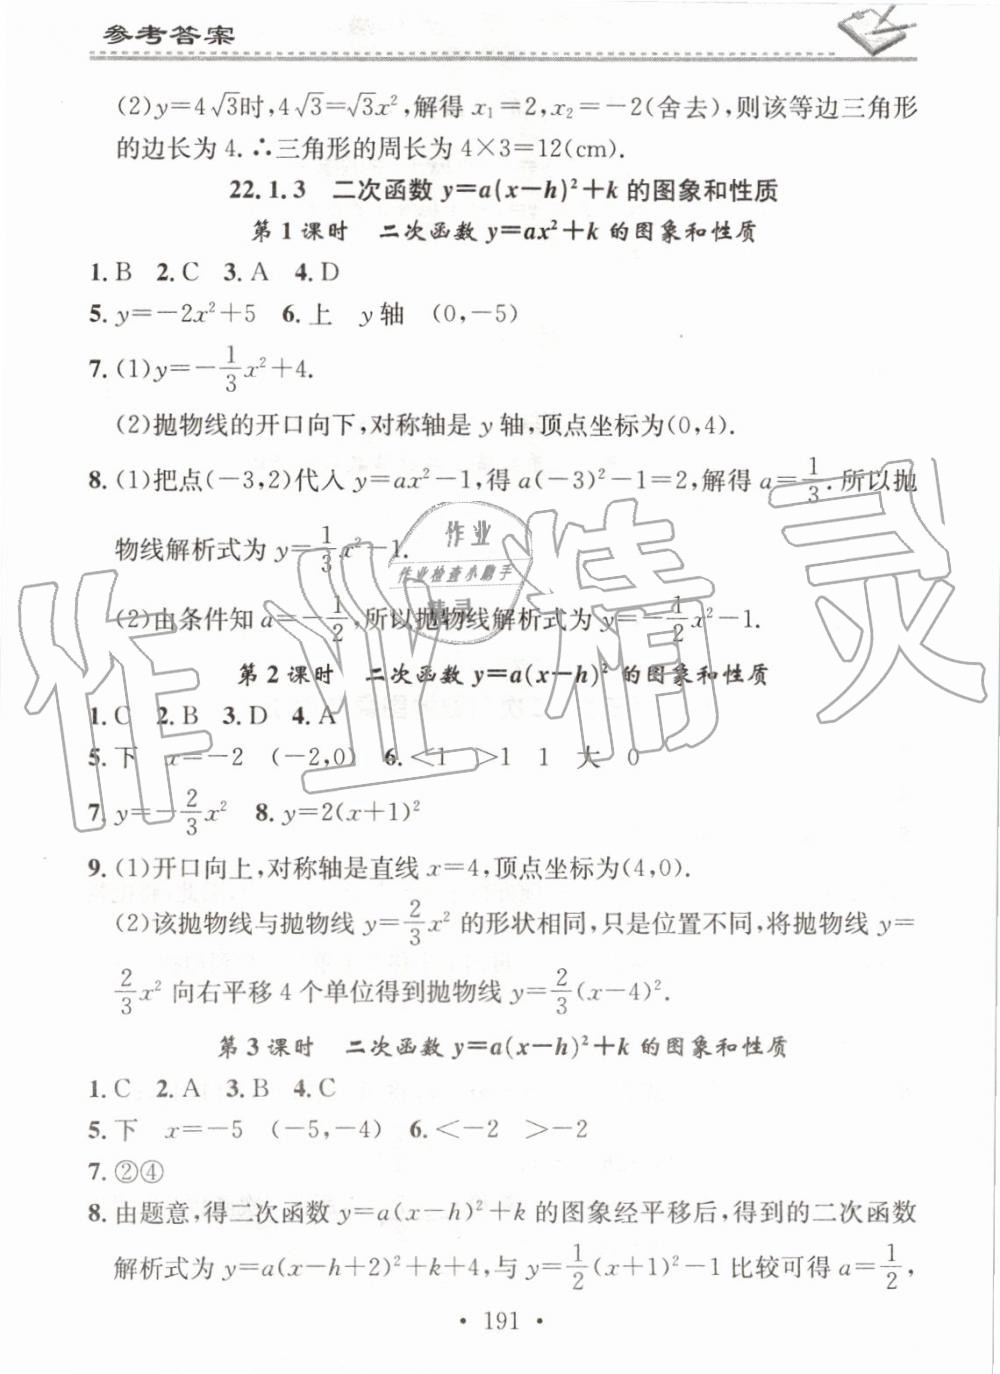 参考答案
(2)y=4√3时,4√3=√3x²,解得 x₁=2,x₂=-2(舍去),则该等边三角形
的边长为 4.∴三角形的周长为 4×3=12(cm).
22.1.3 二次函数 y=a(x-h)²+k 的图象和性质
第1课时 二次函数 y=ax²+k 的图象和性质
1.B 2.C 3.A 4.D
5.y=-2x²+5 6.上 y轴 (0,-5)
7.(1)y=-1/3x²+4.
(2)抛物线的开口向下,对称轴是 y 轴,顶点坐标为(0,4).
8.(1)把点(-3,2)代入 y=ax²-1,得 a(-3)²-1=2,解得 a=1/3.所以抛
物线解析式为 y=1/3x²-1.
(2)由条件知 a=-1/2,所以抛物线解析式为 y=-1/2x²-1.
第2课时 二次函数 y=a(x-h)² 的图象和性质
1.C 2.B 3.D 4.A
5.下 x=-2 (-2,0) 6.<1 >1 1 大 0
7.y=-2/3x² 8.y=2(x+1)²
9.(1)开口向上,对称轴是直线 x=4,顶点坐标为(4,0).
(2)该抛物线与抛物线 y=2/3x² 的形状相同,只是位置不同,将抛物线 y=
2/3x² 向右平移 4 个单位得到抛物线 y=2/3(x-4)².
第3课时 二次函数 y=a(x-h)²+k 的图象和性质
1.C 2.A 3.B 4.C
5.下 x=-5 (-5,-4) 6.<-2 >-2
7.②④
8.由题意,得二次函数 y=a(x-h)²+k 的图象经平移后,得到的二次函数
解析式为 y=a(x-h+2)²+k+4,与 y=1/2(x+1)²-1 比较可得 a=1/2,
· 191 ·
作业精灵
作业
作业检查小助手
精灵